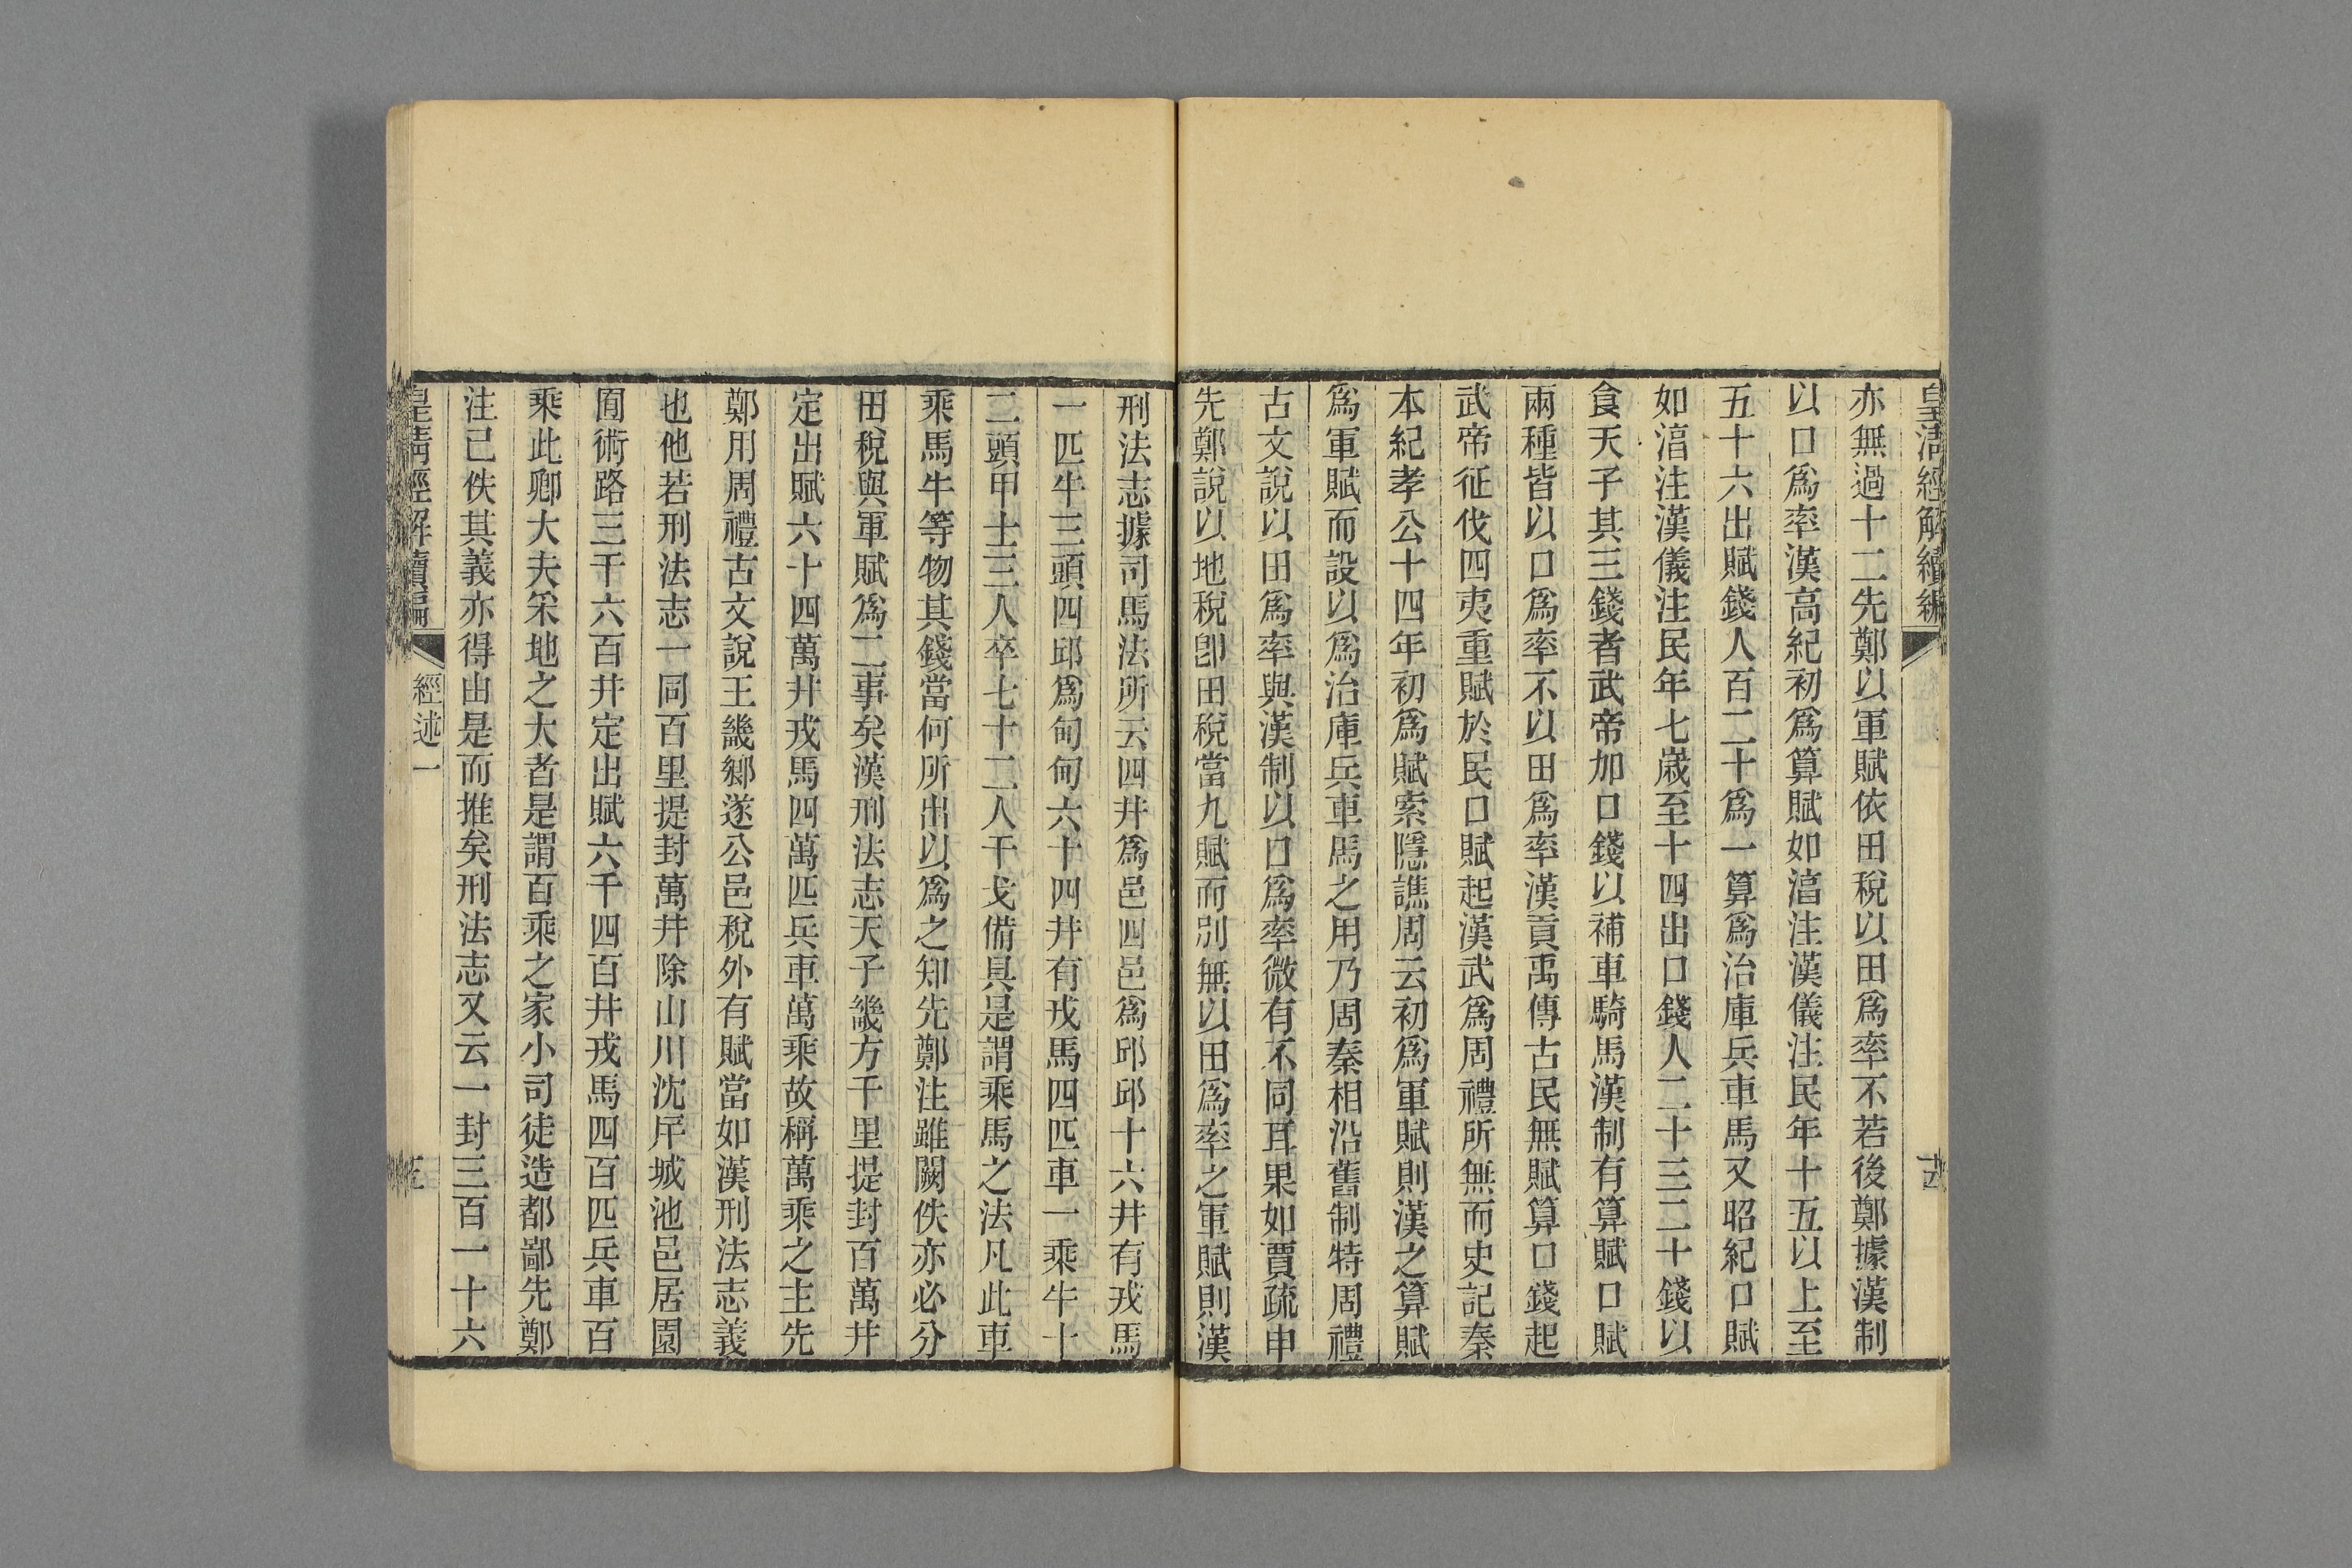 皇清經解續編
亦無過十二先鄭以軍賦依田稅以田爲率不若後鄭據漢制
以口爲率漢高紀初爲算賦如湻注漢儀注民年十五以上至
五十六出賦錢人百二十爲一算爲治庫兵車馬又昭紀口賦
如湻注漢儀注民年七歲至十四出口錢人二十三二十錢以
食天子其三錢者武帝加口錢以補車騎馬漢制有算賦口賦
兩種皆以口爲率不以田爲率漢貢禹傳古民無賦算口錢起
武帝征伐四夷重賦於民口賦起漢武爲周禮所無而史記秦
本紀孝公十四年初爲賦索隱譙周云初爲軍賦則漢之算賦
爲軍賦而設以爲治庫兵車馬之用乃周秦相沿舊制特周禮
古文說以田爲率與漢制以口爲率微有不同耳果如賈疏申
先鄭說以地稅卽田稅當九賦而別無以田爲率之軍賦則漢
刑法志據司馬法所云四井爲邑四邑爲邱邱十六井有戎馬
一匹牛三頭四邱爲甸甸六十四井有戎馬四匹車一乘牛十
二頭甲士三人卒七十二人干戈備具是謂乘馬之法凡此車
乘馬牛等物其錢當何所出以爲之知先鄭注雖闕佚亦必分
田稅與軍賦爲二事矣漢刑法志天子畿方千里提封百萬井
定出賦六十四萬井戎馬四萬匹兵車萬乘故稱萬乘之主先
鄭用周禮古文說王畿鄉遂公邑稅外有賦當如漢刑法志義
也他若刑法志一同百里提封萬井除山川沈斥城池邑居園
囿術路三千六百井定出賦六千四百井戎馬四百匹兵車百
乘此卿大夫采地之大者是謂百乘之家小司徒造都鄙先鄭
注已佚其義亦得由是而推矣刑法志又云一封三百一十六
皇清經解續編
經述一